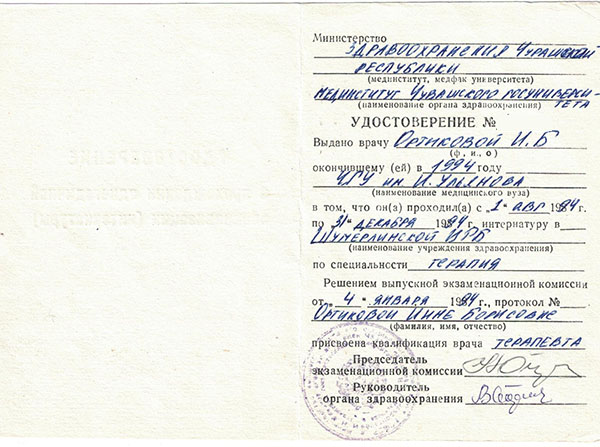 Министерство
ЗДРАВООХРАНЕНИЯ ЧУВАШСКОЙ
РЕСПУБЛИКИ
(мединститут, медфак университета)
МЕДИНСТИТУТ ЧУВАШСКОГО ГОСУНИВЕРСИ-
ТЕТА
(наименование органа здравоохранения)
УДОСТОВЕРЕНИЕ №
Выдано врачу ОРТИКОВОЙ И.Б
(ф., и., о)
окончившему (ей) в 1994 году
ЧГУ им И. УЛЬЯНОВА
(наименование медицинского вуза)
в том, что он(а) проходил(а) с „1" АВГ 1994г.
по „31" ДЕКАБРЯ 1994г. интернатуру в
ШУМЕРЛИНСКОЙ ЦРБ
(наименование учреждения здравоохранения)
по специальности ТЕРАПИЯ
Решением выпускной экзаменационной комиссии
от „4" ЯНВАРЯ 1994г., протокол №
ОРТИКОВОЙ ИННЕ БОРИСОВНЕ
(фамилия, имя, отчество)
присвоена квалификация врача ТЕРАПЕВТА
Председатель
экзаменационной комиссии
Руководитель
органа здравоохранения